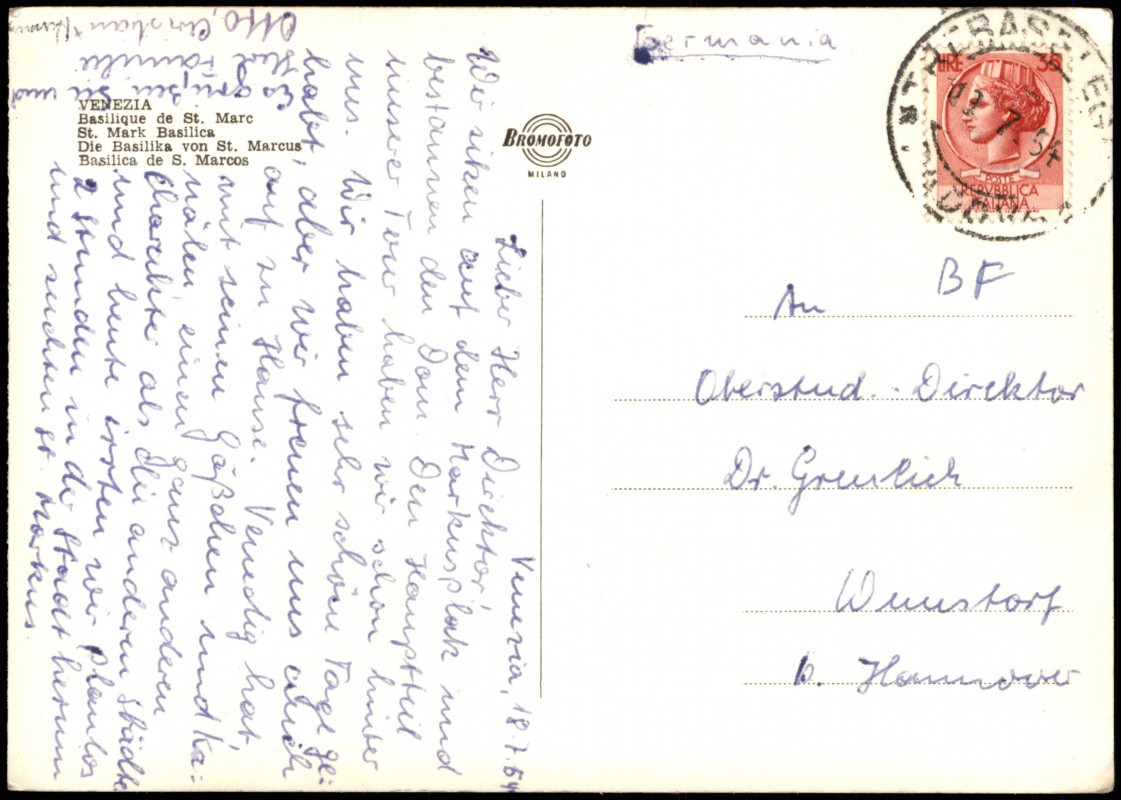 Venezia, 18.7.54
Lieber Herr Direktor!
Wir sitzen auf dem Markusplatz und
bestaunen den Dom. Den Hauptteil
unserer Tour haben wir schon hinter
uns. Wir haben sehr schöne Tage ge-
habt, aber wir freuen uns auch
auf zu Hause. Venedig hat
mit seinen Gäßchen und Ka-
nälen einen ganz anderen
Charakter als die anderen Städte
und heute irrten wir planlos
2 Stunden in der Stadt herum
und suchten St. Markus.
Es grüßen Sie und
Ihre Familie
Otto, Christian +
VENEZIA
Basilique de St. Marc
St. Mark Basilica
Die Basilika von St. Marcus
Basilica de S. Marcos
BROMOFOTO
MILANO
Germania
LIRE 35
POSTE
REPVBBLICA
ITALIANA
TREBASELEGHE
PADOVA
7 54
BF
An
Oberstud.-Direktor
Dr. Greulich
Wunstorf
b. Hannover